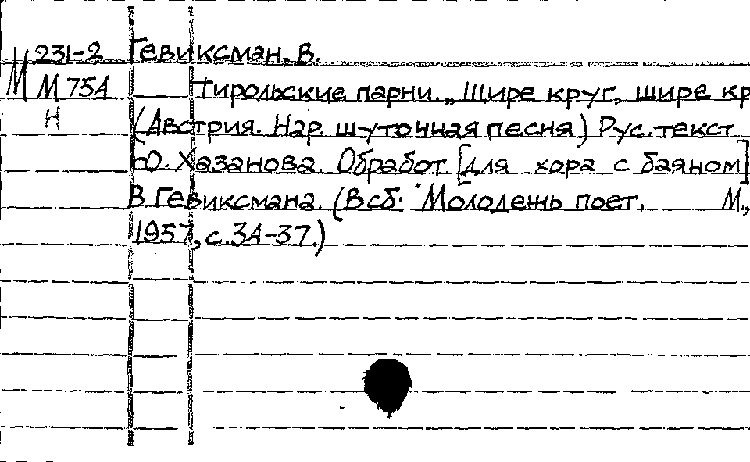 231-2 Гевиксман, В.
М М 75А Тирольские парни. „Шире круг, шире кр
Н (Австрия. Нар. шуточная песня) Рус. текст
Ю. Хазанова. Обработ [для хора с баяном]
В Гевиксмана. (В сб: "Молодежь поет. М.,
1957, с. 34-37.)